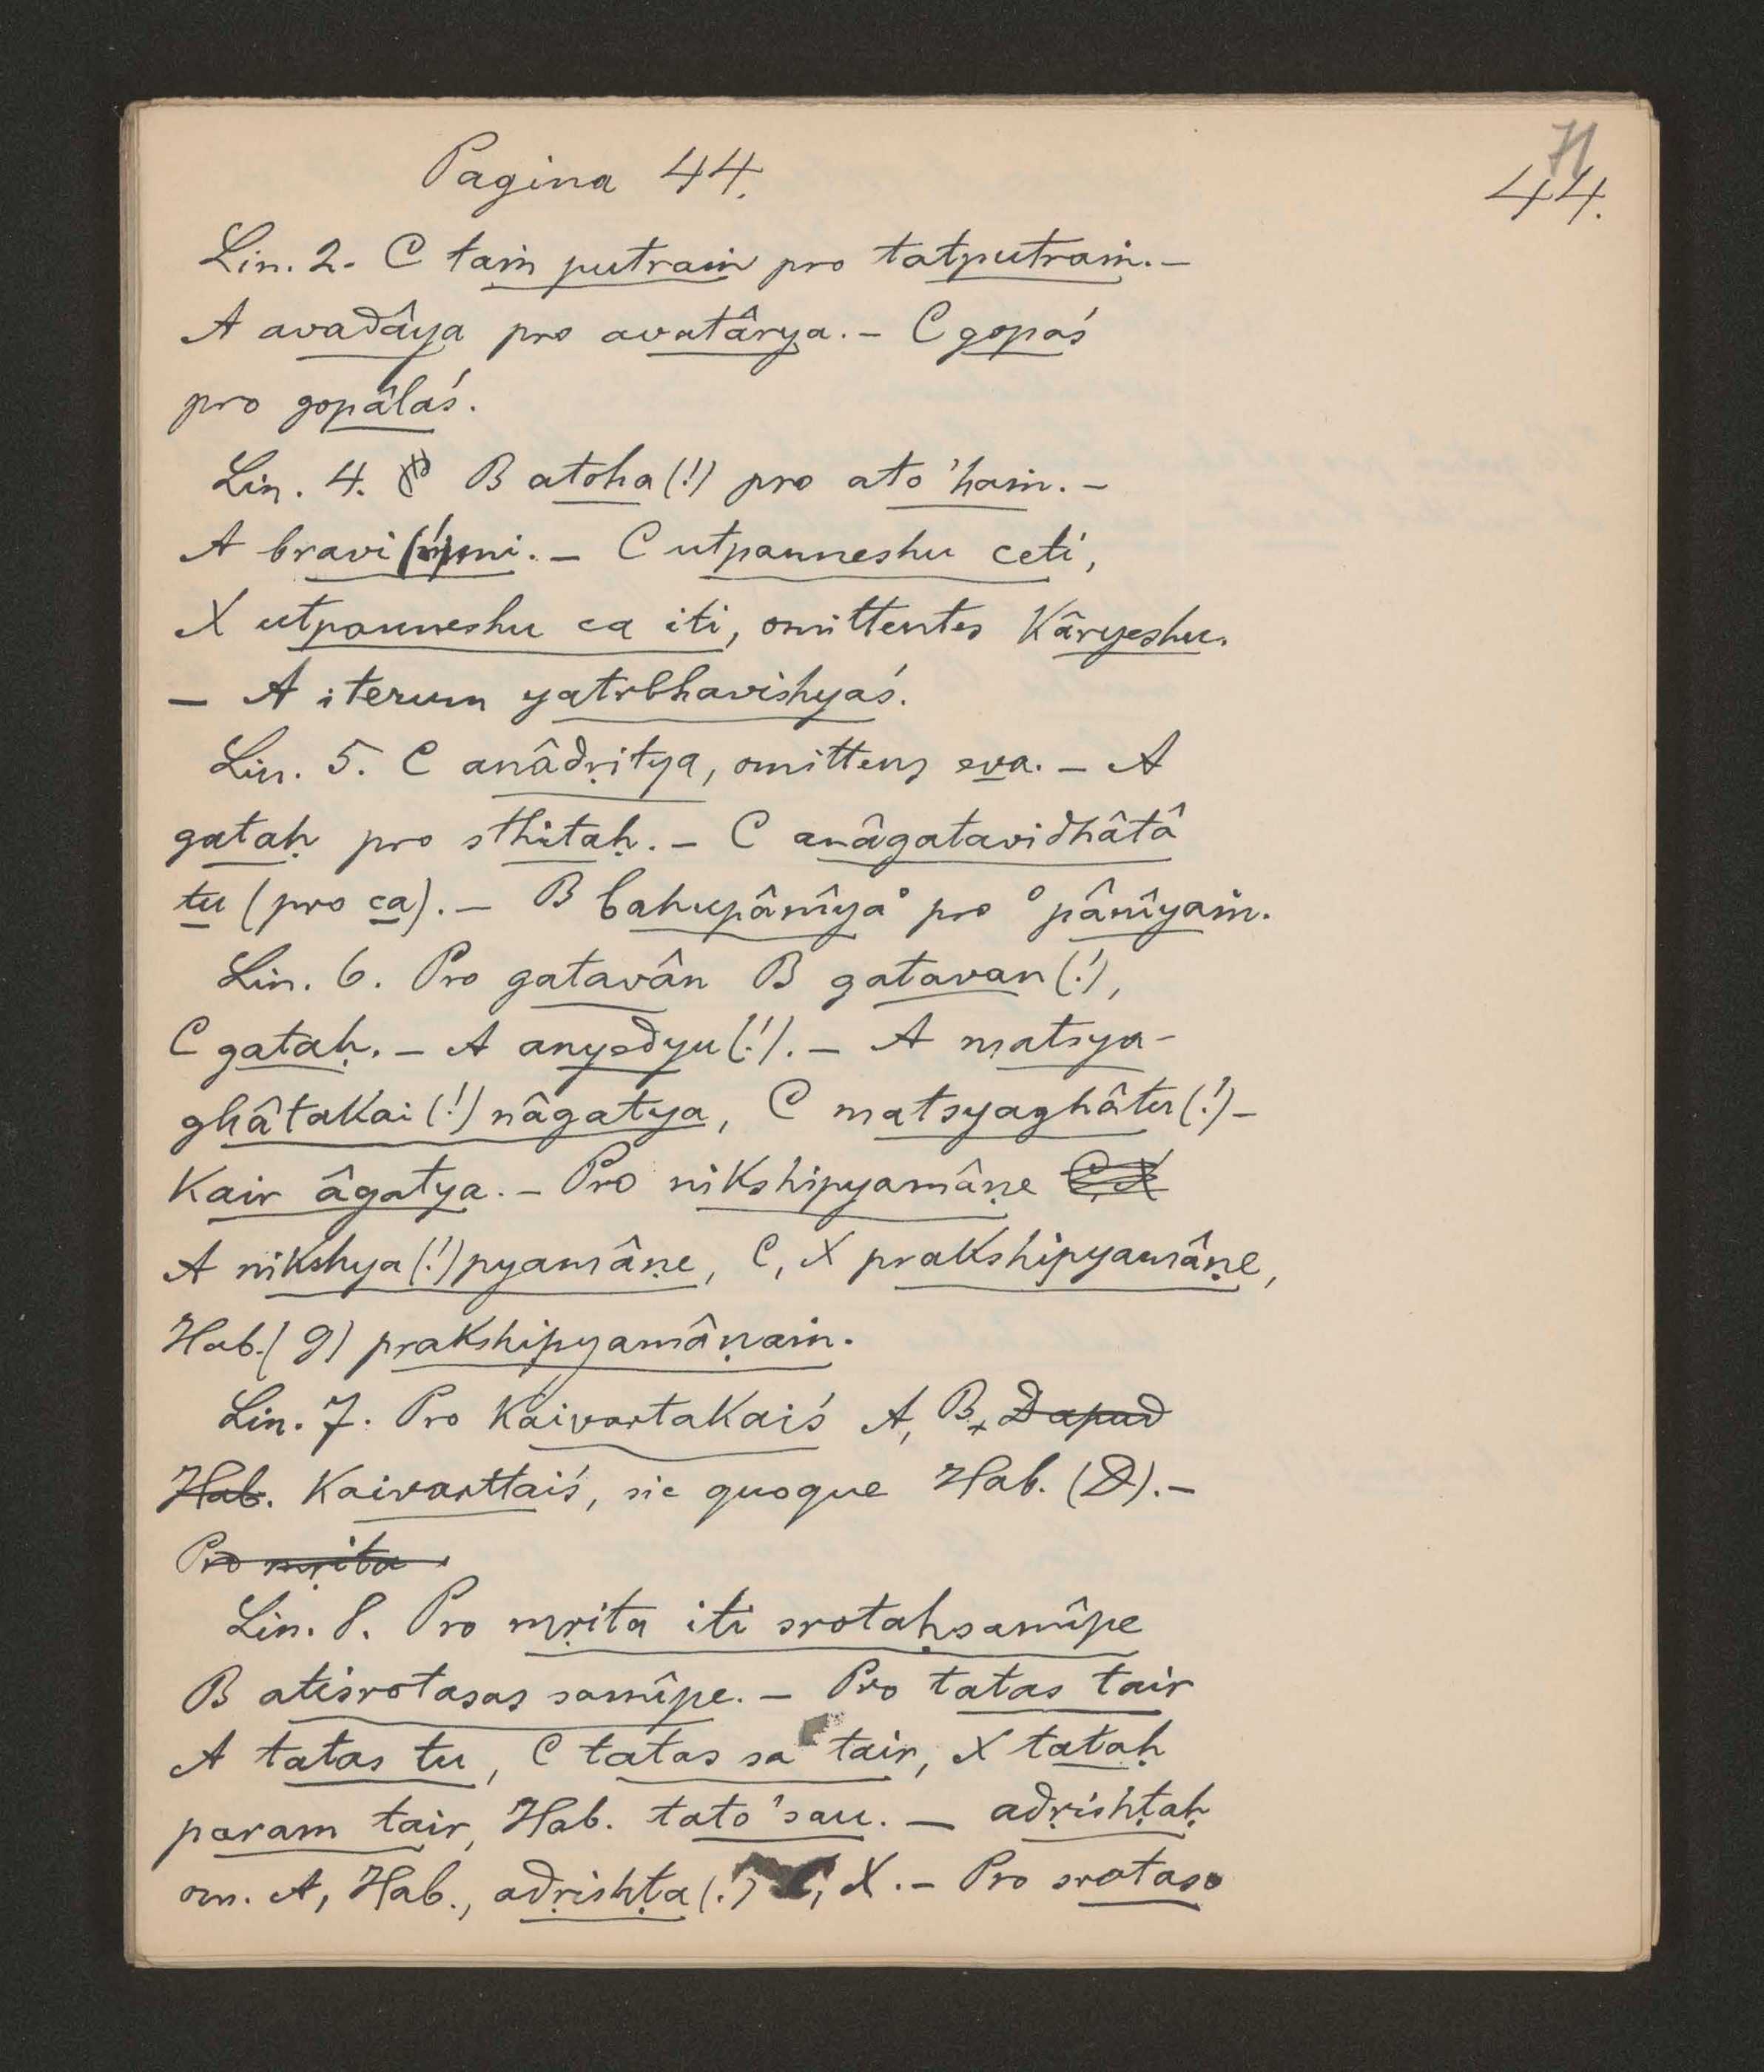 Pagina 44.
71
44.
Lin. 2. C taṁ putraṁ pro tatputraṁ. —
A avadâya pro avatârya. — C gopaś
pro gopâlaś.
Lin. 4. B atoha (!) pro ato 'haṁ. —
A bravi(!)mi. — C utpanneshu ceti,
X utpanneshu ca iti, omittentes kâryeshu.
— A iterum yatrbhavishyaś.
Lin. 5. C anâdṛitya, omittens eva. — A
gataḥ pro sthitaḥ. — C anâgatavidhâtâ
tu (pro ca). — B bahupânîya° pro °pânîyaṁ.
Lin. 6. Pro gatavân B gatavan (!),
C gataḥ. — A anyedyu (!). — A matsya-
ghâtakai (!) nâgatya, C matsyaghâtu (!)-
kair âgatya. — Pro nikshipyamâṇe C, X
A nikshya (!) pyamâṇe, C, X prakshipyamâṇe,
Hab. (9) prakshipyamâṇaṁ.
Lin. 7. Pro kaivartakaiś A, B, D apud
Hab. kaivarttaiś, sic quoque Hab. (D). —
Pro mṛita
Lin. 8. Pro mṛita iti srotaḥsamîpe
B atisrotasas samîpe. — Pro tatas tair
A tatas tu, C tatas sa tair, X tataḥ
param tair, Hab. tato 'sau. — adṛishṭaḥ
om. A, Hab., adṛishṭa (!) C, X. — Pro srotaso